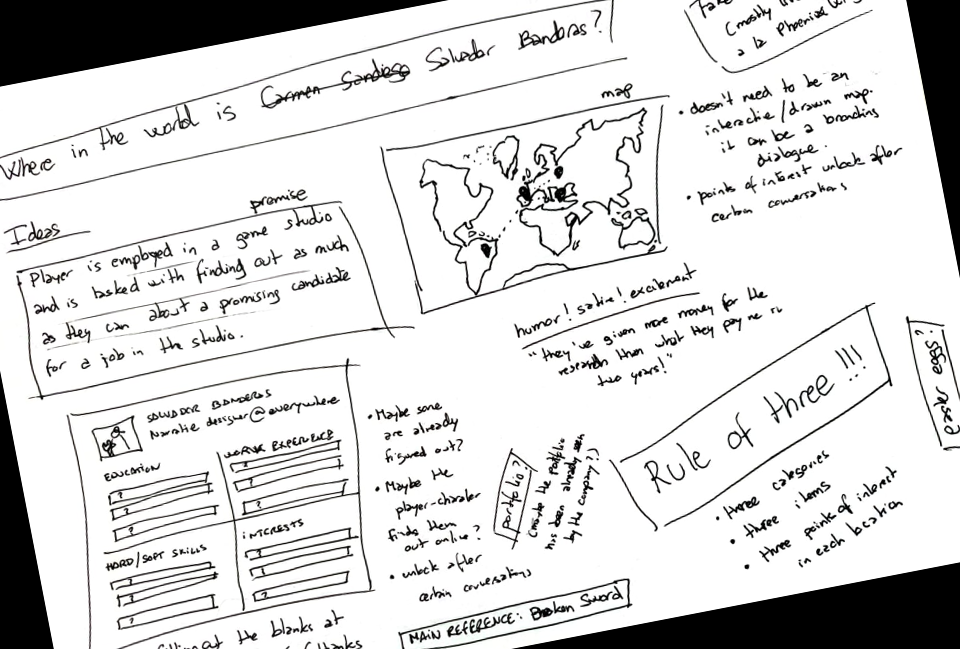 Where in the world is Carmen Sandiego Salvador Banderas?
(mostly
a la Phoenix
map
• doesn't need to be an
interactive/drawn map.
it can be a branching
dialogue.
• points of interest unlock after
certain conversations
Ideas
premise
Player is employed in a game studio
and is tasked with finding out as much
as they can about a promising candidate
for a job in the studio.
humor! satire! excitement
"they've given more money for the
research than what they pay me in
two years!"
SALVADOR BANDERAS
Narrative designer@everywhere
EDUCATION
?
?
?
WORK EXPERIENCE
?
?
?
HARD/SOFT SKILLS
?
?
?
INTERESTS
?
?
?
• Maybe some
are already
figured out?
• Maybe the
player-character
finds them
out online?
• unlock after
certain conversations
portfolio?
(maybe the portfolio
has been already seen
by the company?)
Rule of three!!!
• three categories
• three items
• three points of interest
in each location
easter eggs:
MAIN REFERENCE: Broken Sword
the blanks at